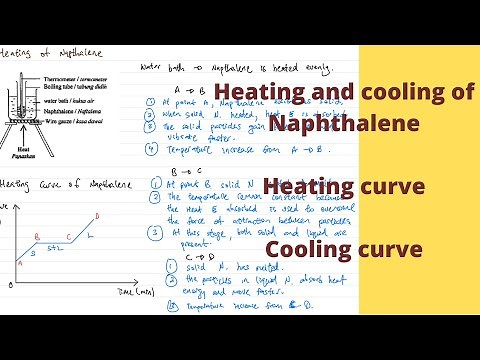 Heating of Napthalene
Thermometer / termometer
Boiling tube / tabung didih
water bath / kukus air
Naphthalene / Naftalena
Wire gauze / kasa dawai
Heat
Panaskan
Heating Curve of Napthalene
D
B
C
L
S+L
S
A
0
Time (min)
Water bath → Napthalene is heated evenly.
A → B
① At point A, Napthalene solid.
② When solid N. heated, heat E is absorbed
③ The solid particles gain
vibrate faster.
④ Temperature increase from A → B.
B → C
① At point B solid N
② The temperature remain constant because
the heat E absorbed is used to overcome
the force of attraction between particles
③ At this stage, both solid and liquid are
present.
C → D
① Solid N. has melted.
② The particles in liquid N. absorb heat
energy and move faster.
③ Temperature increase from C - D.
Heating and cooling of
Naphthalene
Heating curve
Cooling curve